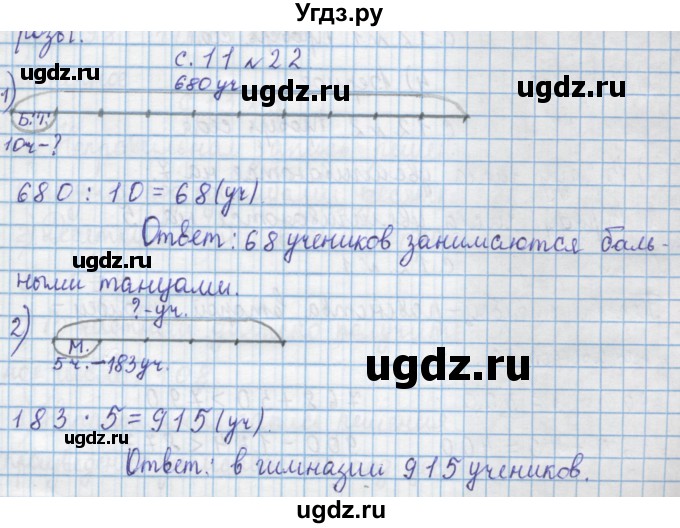 Угдз.ру
разы.
с. 11 №22
ugdz.ru
ugdz.ru
ugdz.ru
680 уч
1)
Б.Т.
10ч-?
ugdz.ru
680 : 10 = 68 (уч)
Ответ: 68 учеников занимаются баль-
ugdz.ru
ными танцами.
ugdz.ru
?-уч.
2)
М.
5ч. - 183уч.
ugdz.ru
183 · 5 = 915 (уч).
ugdz.ru
Ответ: в гимназии 915 учеников.
ugdz.ru
Угдз.ру